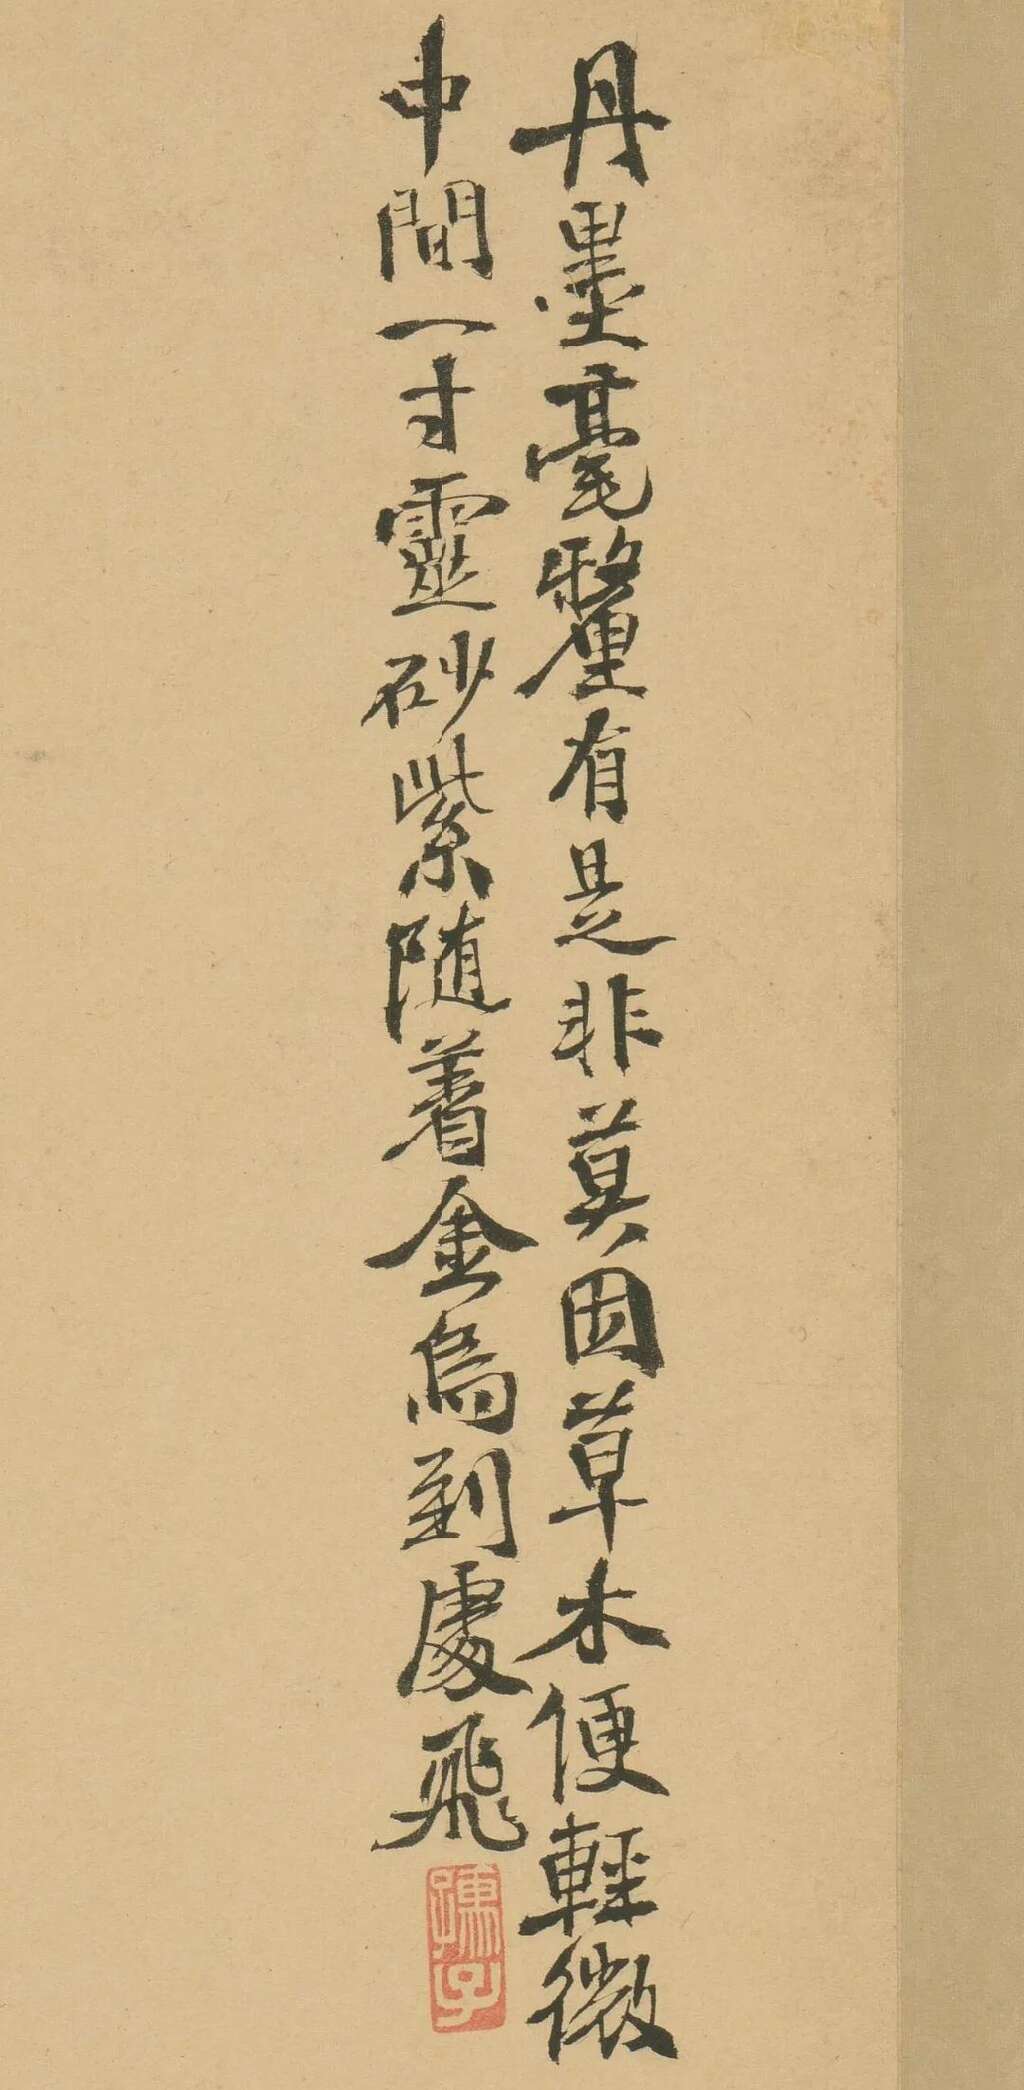 丹墨毫釐有是非莫因草木便輕微
中間一寸靈砂紫随着金烏到處飛